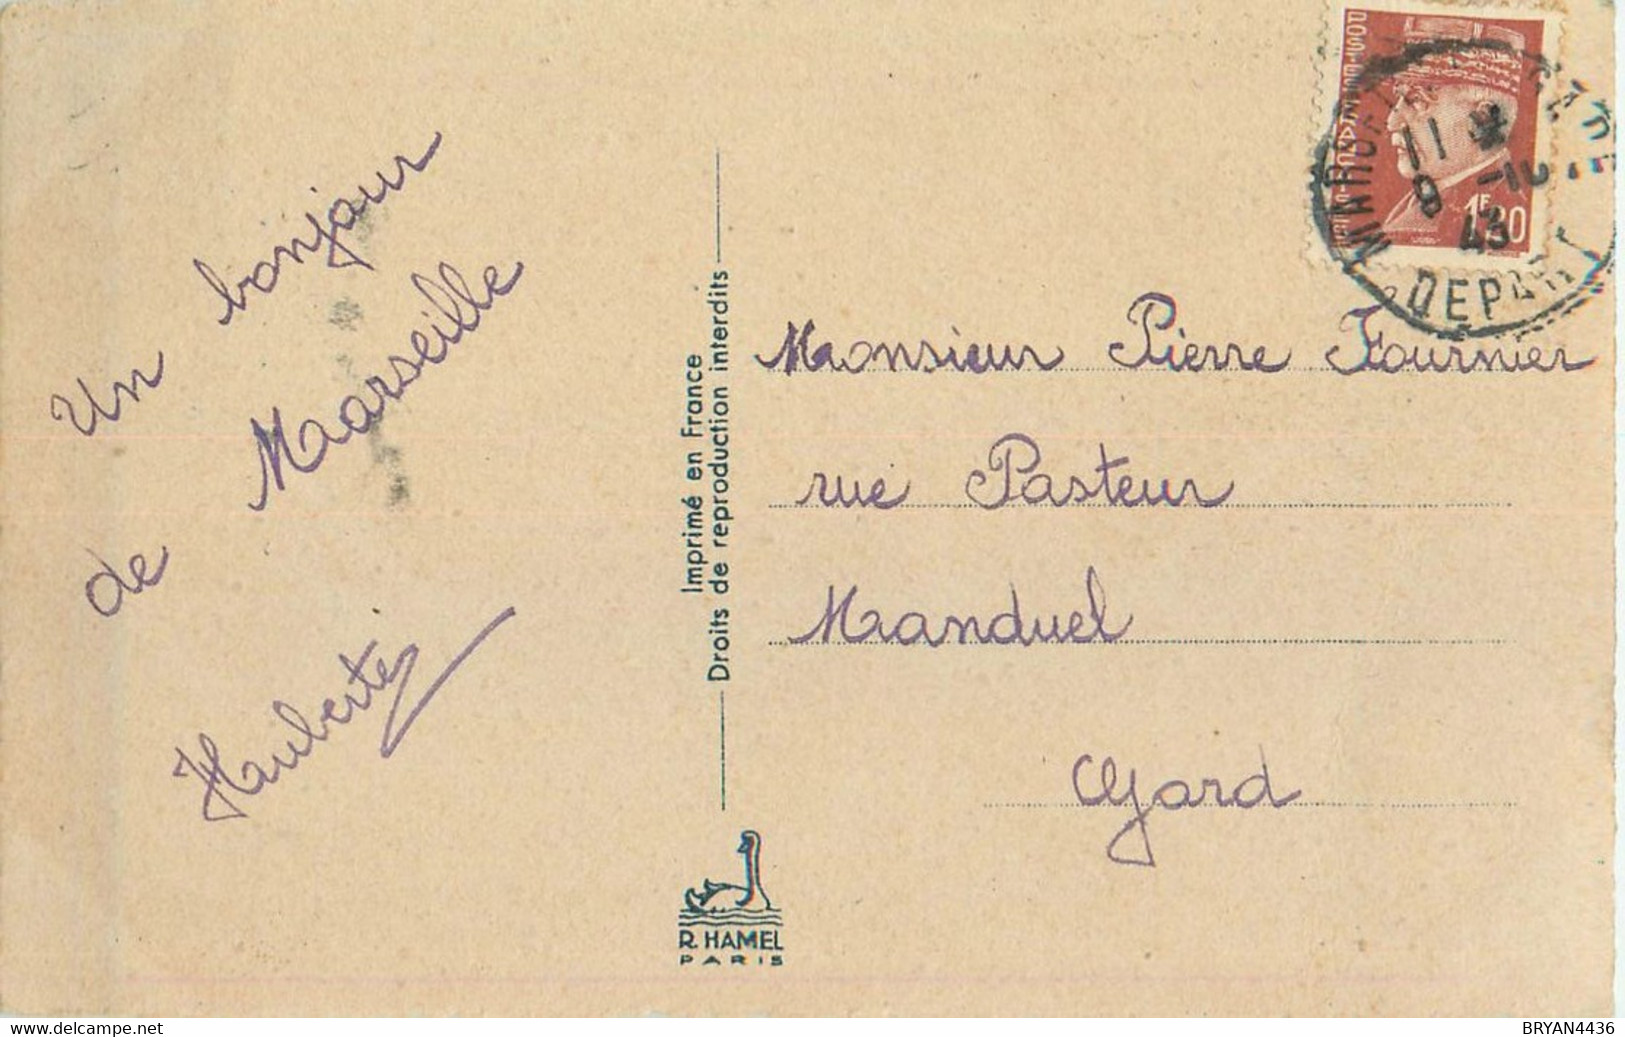 Un bonjour
de Marseille
Hauberte
Imprimé en France
Droits de reproduction interdits
R. HAMEL
PARIS
1F20
11
9 -10
43
DEPART
Monsieur Pierre Fournier
rue Pasteur
Manduel
Gard
www.delcampe.net
BRYAN4436